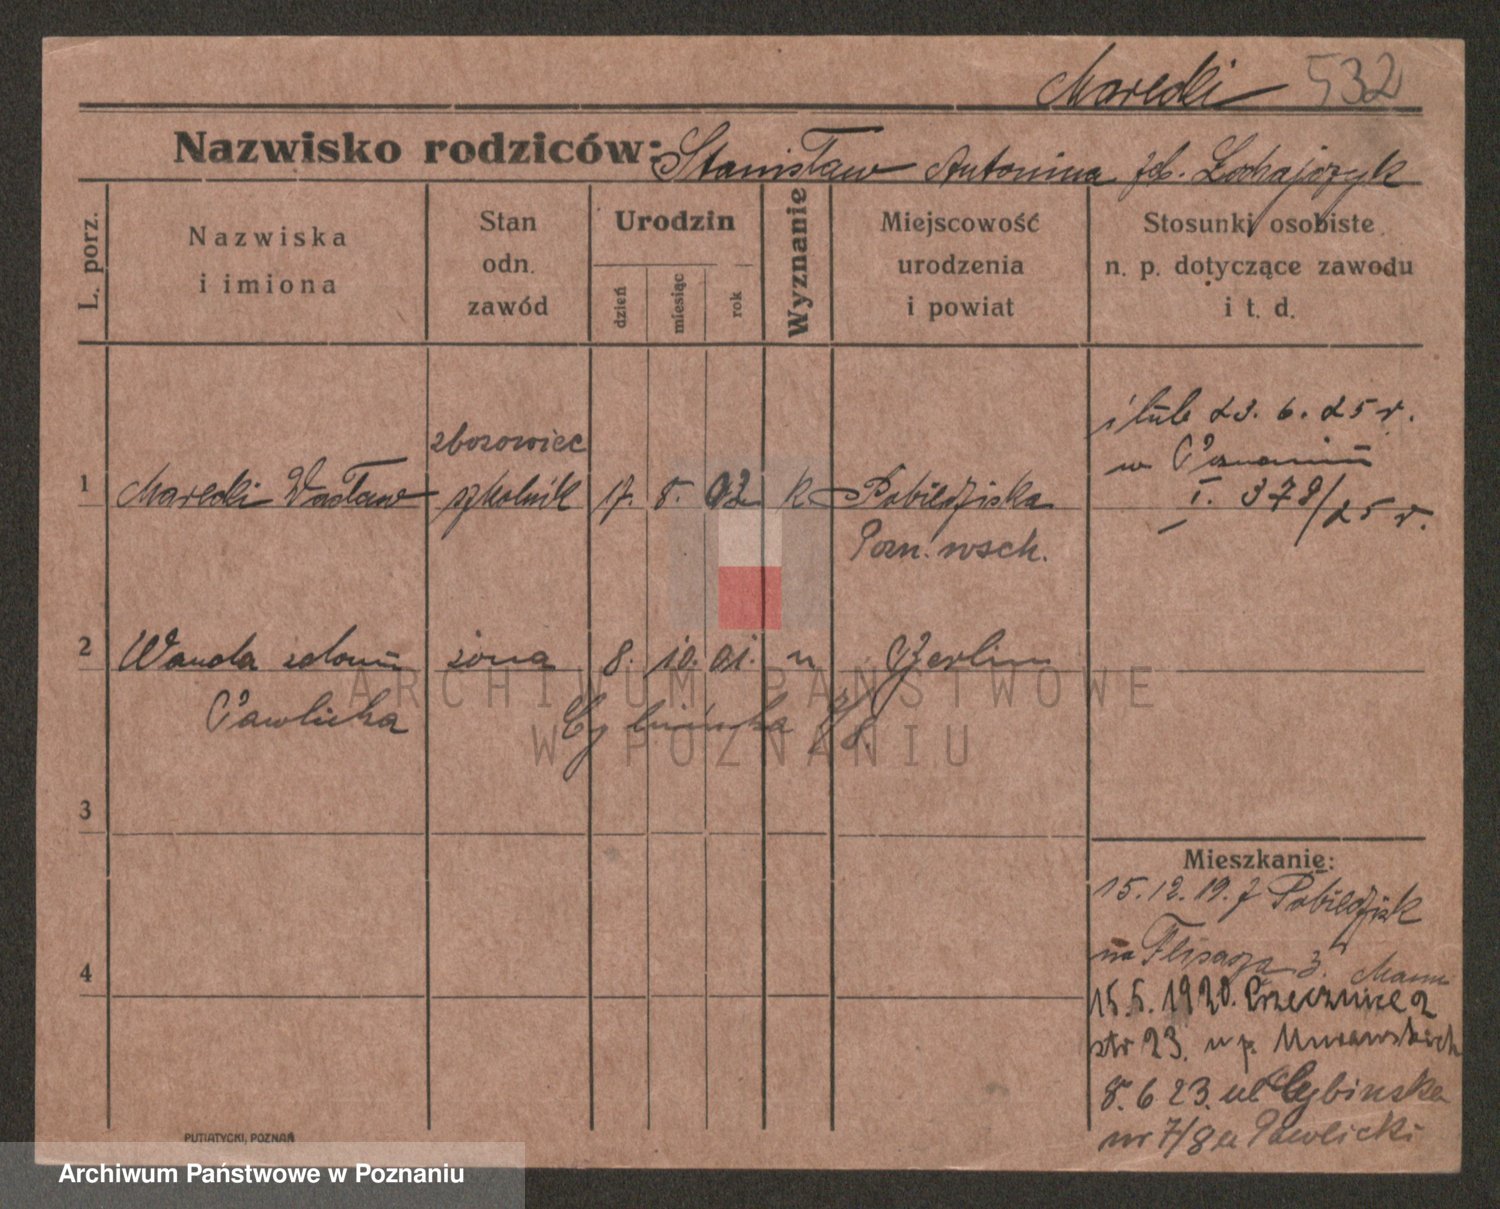 Marecki 532
Nazwisko rodziców: Stanisław Antonina
L. porz.
Nazwiska
i imiona
Stan
odn.
zawód
Urodzin
dzień
miesiąc
rok
Wyznanie
Miejscowość
urodzenia
i powiat
Stosunki osobiste
n. p. dotyczące zawodu
i t. d.
ślub 23. 6. 25 r.
w Poznaniu
I. 378/25 r.
zbozowiec
1 Marecki Wacław szkolnik 17. 8. 02 k Pobiedziska
Pozn. wsch.
2 Wanda zdomu żona 8. 10. 01. " Berlin
Pawlicka Cybińska 7/8.
3
4
Mieszkanie:
15.12.19. z Pobiedzisk
na Flisacza 3.
15.5.1920. Przecznica
str 23. u p. Murawskich
8. 6 23. ul Cybinska
nr 7/8 u Pawlicki
PUTIATYCKI, POZNAŃ
ARCHIWUM PAŃSTWOWE
W POZNANIU
Archiwum Państwowe w Poznaniu